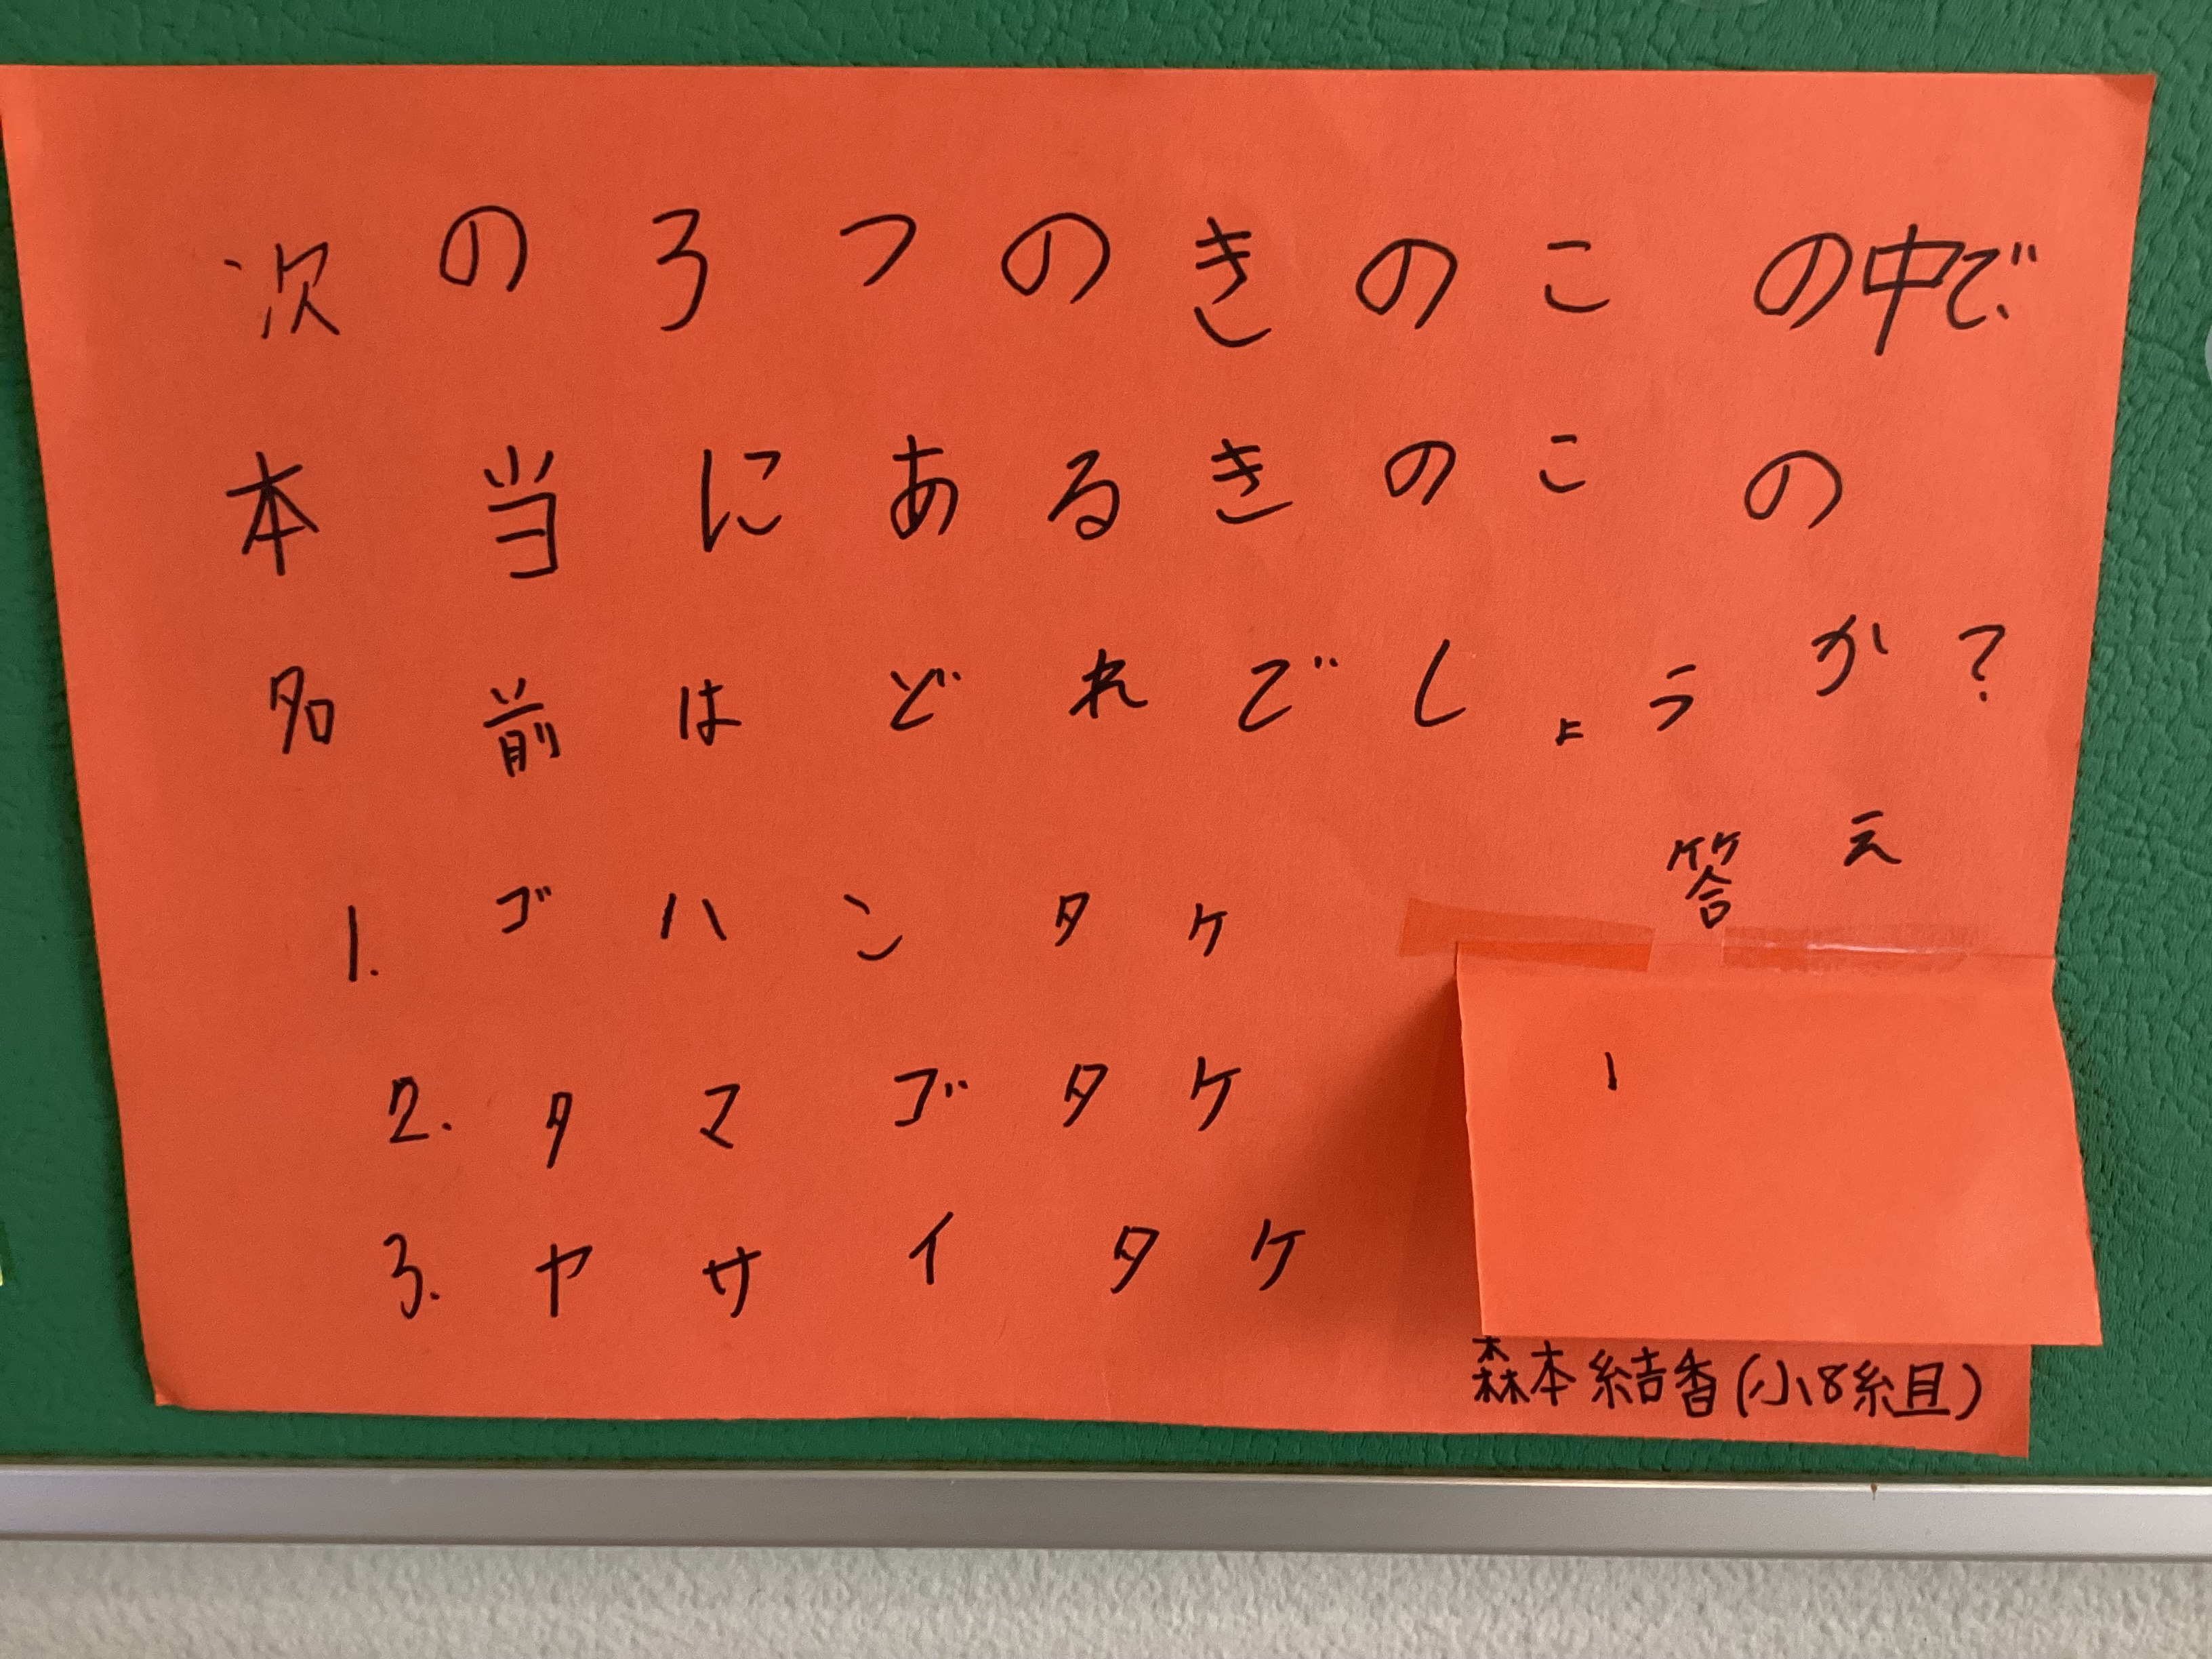 次の3つのきのこの中で
本当にあるきのこの
名前はどれでしょうか?
答え
1. ゴハンタケ
2. タマゴタケ
3. ヤサイタケ
森本結香(小8組)